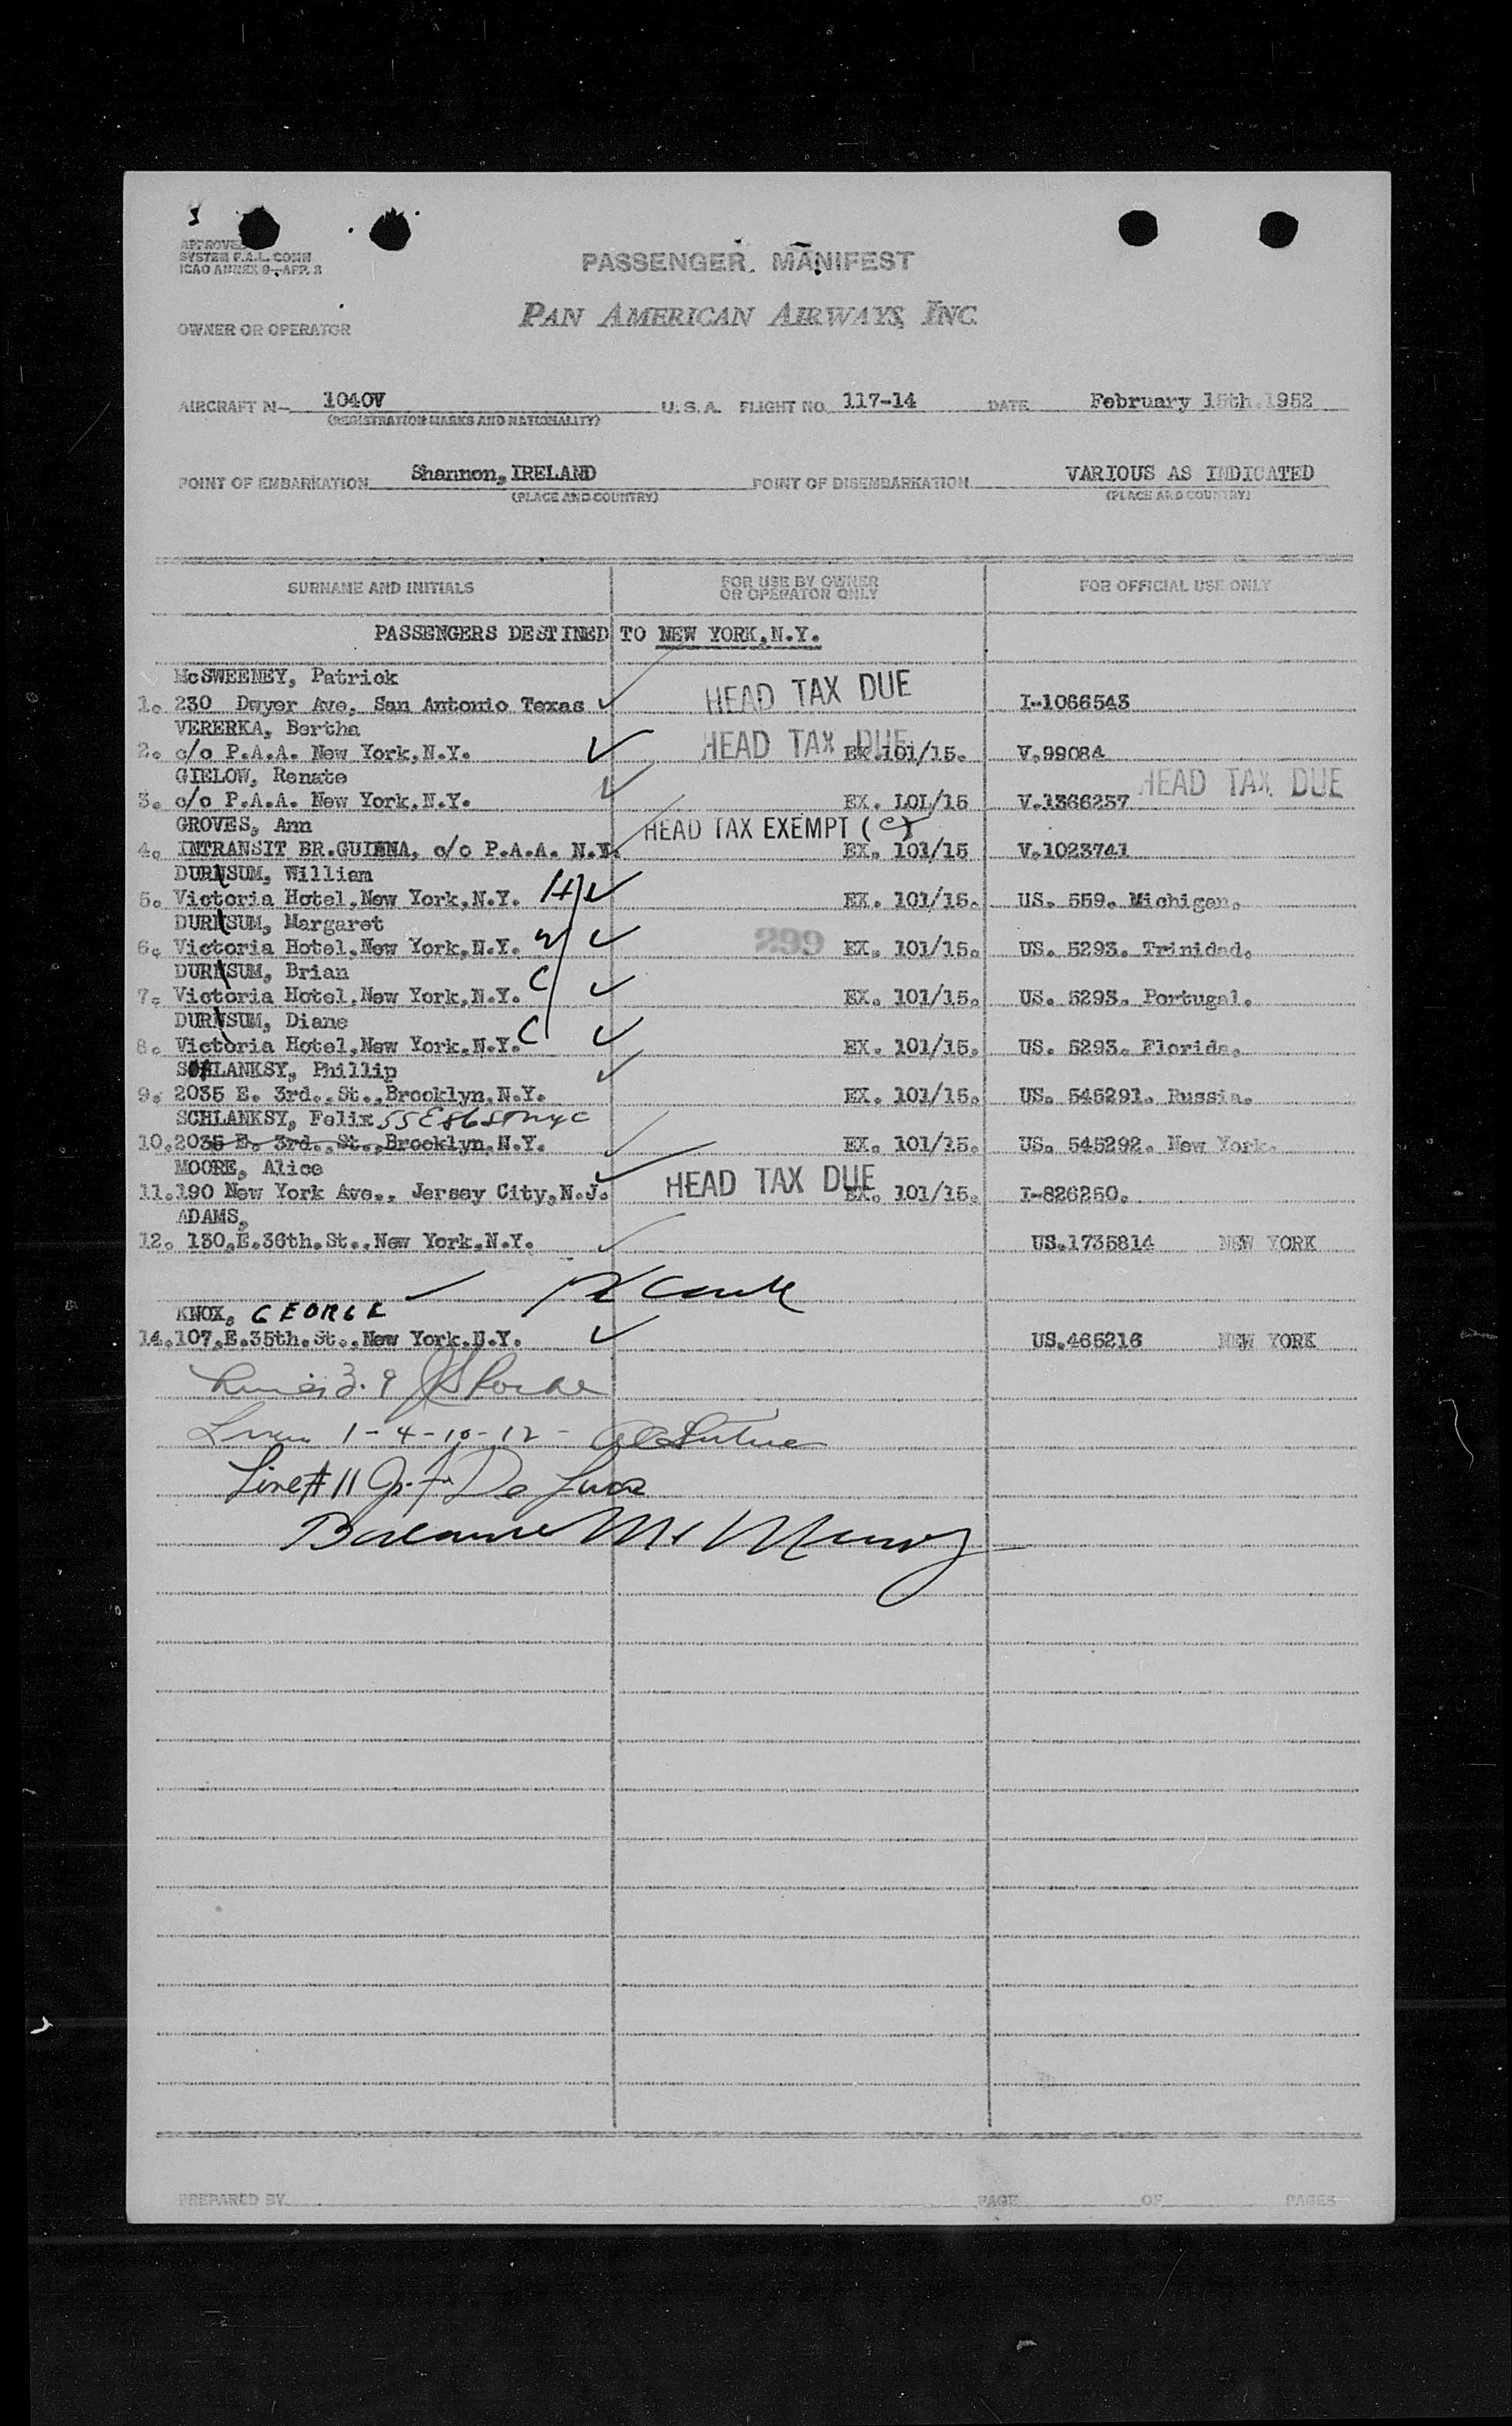 APPROVED
SYSTEM F.A.L. COMM
ICAO ANNEX 9-APP. 3
PASSENGER MANIFEST
PAN AMERICAN AIRWAYS, INC.
OWNER OR OPERATOR
AIRCRAFT N- 1040V U.S.A. FLIGHT NO. 117-14 DATE February 15th.1952
(REGISTRATION MARKS AND NATIONALITY)
POINT OF EMBARKATION Shannon, IRELAND POINT OF DISEMBARKATION VARIOUS AS INDICATED
(PLACE AND COUNTRY) (PLACE AND COUNTRY)
SURNAME AND INITIALS FOR USE BY OWNER OR OPERATOR ONLY FOR OFFICIAL USE ONLY
PASSENGERS DESTINED TO NEW YORK,N.Y.
McSWEENEY, Patrick
1. 230 Dwyer Ave, San Antonio Texas HEAD TAX DUE I-1066543
VERERKA, Bertha
2. c/o P.A.A. New York,N.Y. HEAD TAX DUE EX.101/15. V.99084
GIELOW, Renate
3. c/o P.A.A. New York.N.Y. EX. 101/15 V.1366237 HEAD TAX DUE
GROVES, Ann HEAD TAX EXEMPT (C)
4. INTRANSIT BR.GUIENA, c/o P.A.A. N.Y. EX. 101/15 V.1023741
DURNSUM, William
5. Victoria Hotel,New York,N.Y. H EX. 101/15. US. 559. Michigan.
DURNSUM, Margaret
6. Victoria Hotel,New York,N.Y. W 299 EX. 101/15. US. 5293. Trinidad.
DURNSUM, Brian
7. Victoria Hotel,New York,N.Y. C EX. 101/15. US. 5293. Portugal.
DURNSUM, Diane
8. Victoria Hotel,New York,N.Y. C EX. 101/15. US. 5293. Florida.
SCHLANKSY, Phillip
9. 2035 E. 3rd..St..Brooklyn,N.Y. EX. 101/15. US. 545291. Russia.
SCHLANKSY, Felix 55 E 86 ST NYC
10.2035 E. 3rd..St..Brooklyn,N.Y. EX. 101/15. US. 545292. New York.
MOORE, Alice
11.190 New York Ave., Jersey City,N.J. HEAD TAX DUE EX. 101/15. I-826250.
ADAMS,
12. 130.E.36th.St..New York,N.Y. US.1735814 NEW YORK
KNOX, GEORGE
14.107.E.35th.St..New York,N.Y. US.465216 NEW YORK
1-4-10-12-
Line # 11 De Luca
Balance
PREPARED BY PAGE OF PAGES